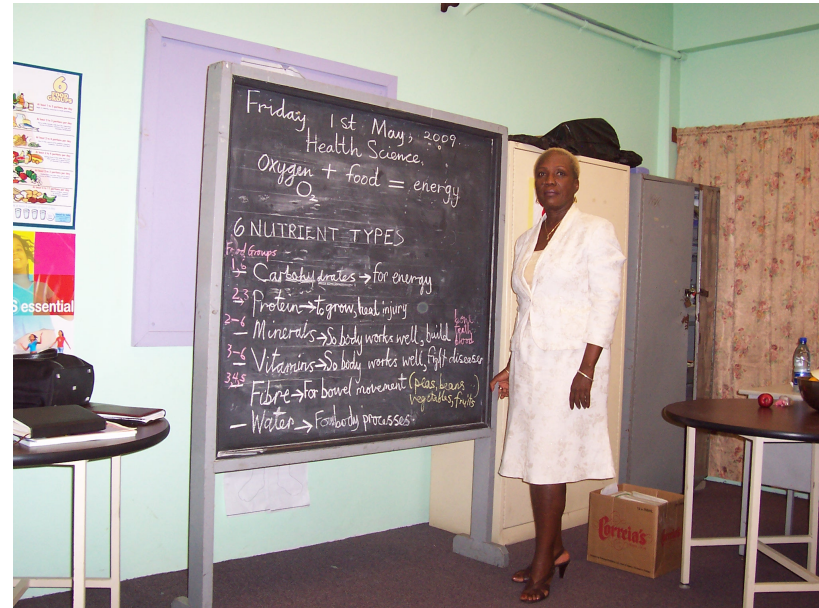 6
FOOD
GROUPS
S essential
Friday, 1st May, 2009.
Health Science.
Oxygen + food = energy
O₂
6 NUTRIENT TYPES
Food Groups
1,6
Carbohydrates → for energy
2,3
Protein → to grow, heal injury
2-6
Minerals → So body works well, build bone teeth blood
3-6
Vitamins → So body works well, fight diseases
3,4,5
Fibre → For bowel movement (peas, beans
vegetables, fruits)
— Water → For body processes.
Correia's